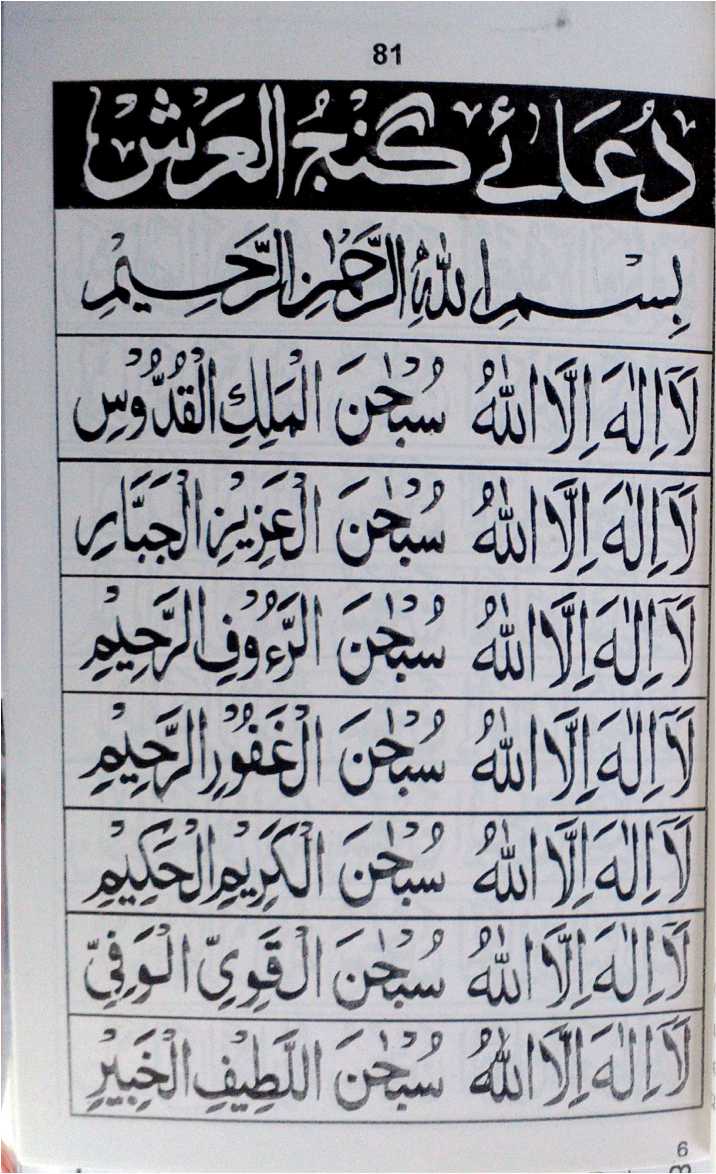 81
دُعَائے گنجُ العَرَش
بِسْمِ اللّٰهِ الرَّحْمٰنِ الرَّحِيْمِ
لَآ اِلٰهَ اِلَّا اللّٰهُ سُبْحٰنَ الْمَلِكِ الْقُدُّوْسِ
لَآ اِلٰهَ اِلَّا اللّٰهُ سُبْحٰنَ الْعَزِيْزِ الْجَبَّارِ
لَآ اِلٰهَ اِلَّا اللّٰهُ سُبْحٰنَ الرَّءُوْفِ الرَّحِيْمِ
لَآ اِلٰهَ اِلَّا اللّٰهُ سُبْحٰنَ الْغَفُوْرِ الرَّحِيْمِ
لَآ اِلٰهَ اِلَّا اللّٰهُ سُبْحٰنَ الْكَرِيْمِ الْحَكِيْمِ
لَآ اِلٰهَ اِلَّا اللّٰهُ سُبْحٰنَ الْقَوِىِّ الْوَفِىِّ
لَآ اِلٰهَ اِلَّا اللّٰهُ سُبْحٰنَ اللَّطِيْفِ الْخَبِيْرِ
6